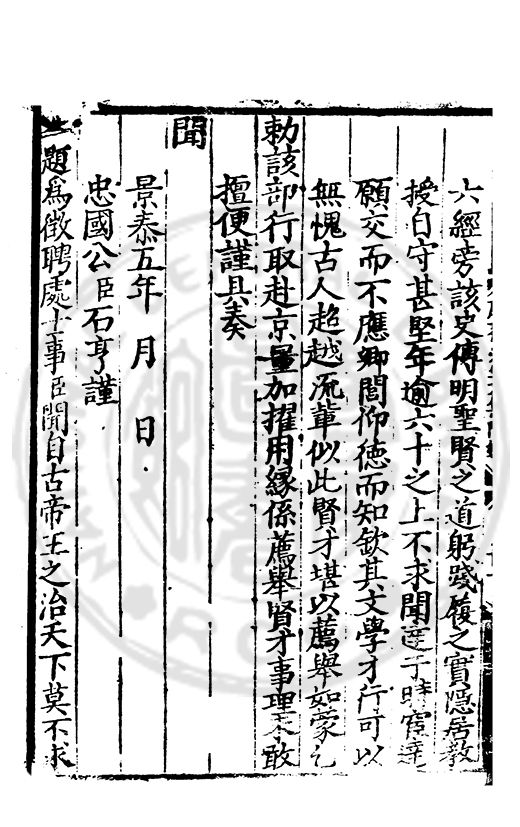 六經旁該史傳明聖賢之道躬踐履之實隱居教
授自守甚堅年逾六十之上不求聞達于時官達
願交而不應鄉閭仰德而知欽其文學才行可以
無愧古人超越流輩似此賢才堪以薦舉如蒙乞
勑該部行取赴京量加擢用緣係薦舉賢才事理未敢
擅便謹具奏
聞
景泰五年 月 日
忠國公臣石亨謹
題為徵聘處士事臣聞自古帝王之治天下莫不求